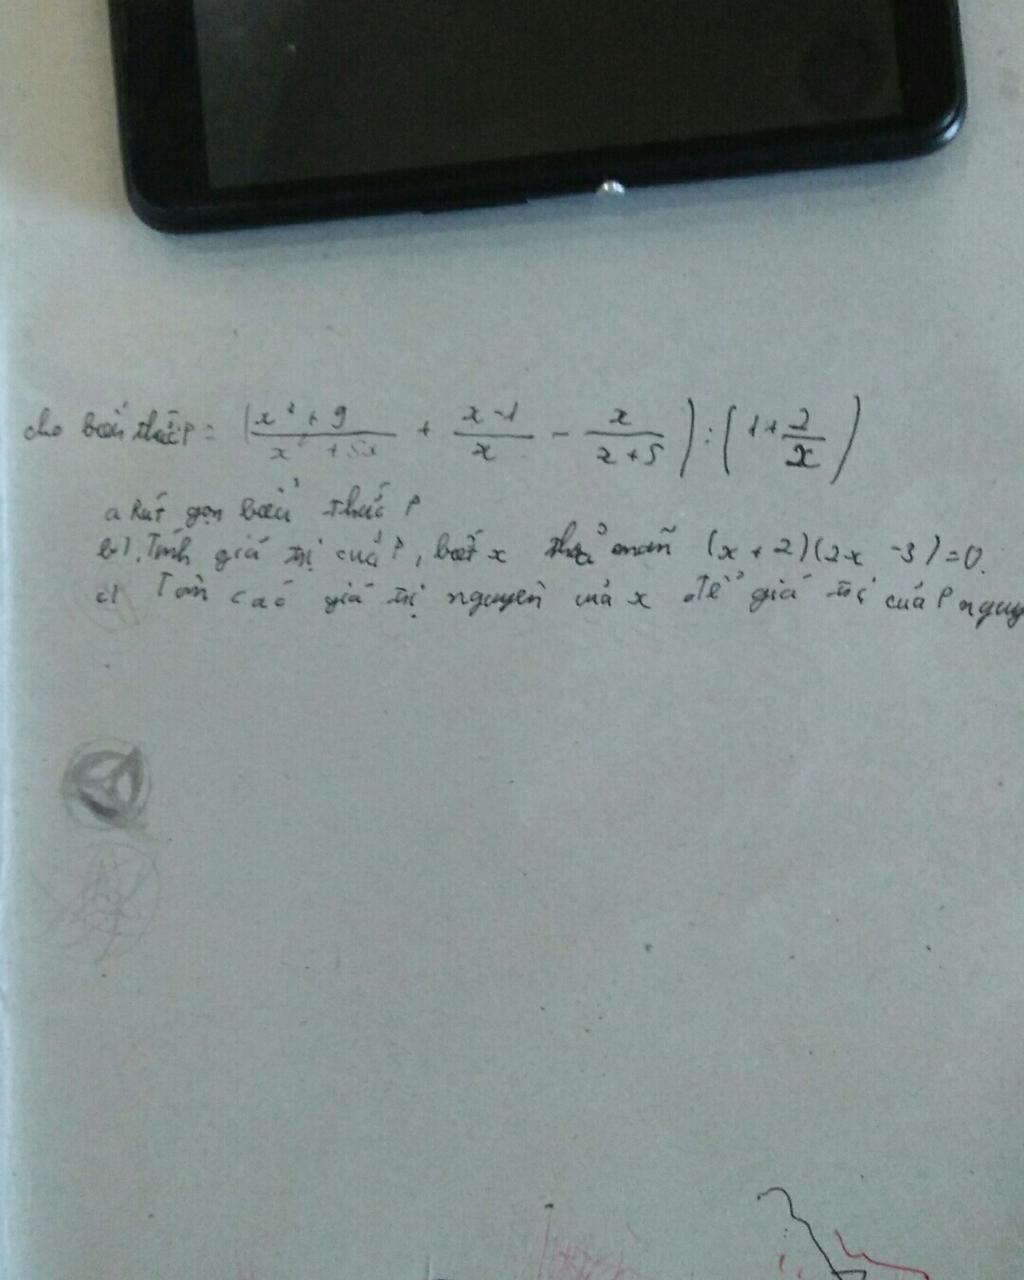 cho biểu thức P = (x² + 9 / x² + 5x + x - 1 / x - x / x + 5) : (1 + 2 / x)
a Rút gọn biểu thức P
b). Tính giá trị của P, biết x thoả mãn (x + 2)(2x - 3) = 0.
c) Tìm các giá trị nguyên của x để giá trị của P nguy